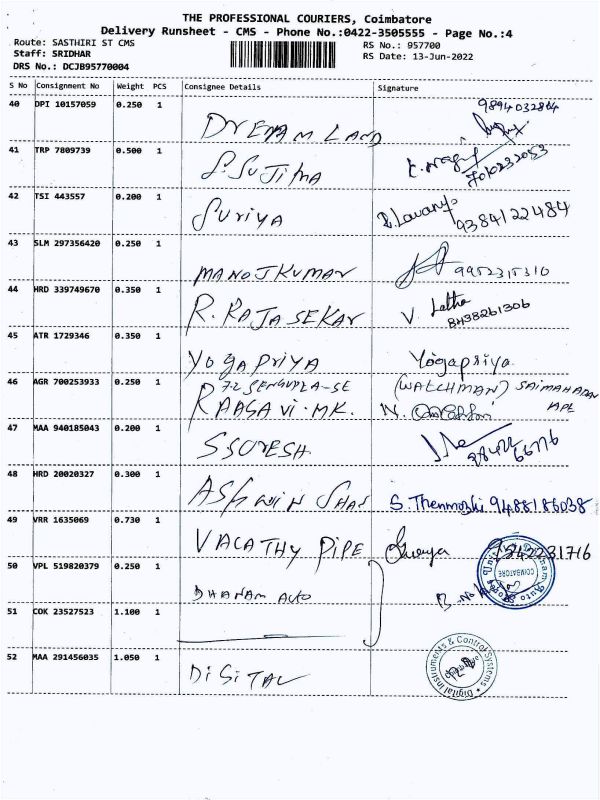 THE PROFESSIONAL COURIERS, Coimbatore
Delivery Runsheet - CMS - Phone No.:0422-3505555 - Page No.:4
Route: SASTHIRI ST CMS RS No.: 957700
Staff: SRIDHAR RS Date: 13-Jun-2022
DRS No.: DCJB95770004
S No Consignment No Weight PCS Consignee Details Signature
40 DPI 10157059 0.250 1 DREAM LAND
41 TRP 7809739 0.500 1 S.SUJIMA
42 TSI 443557 0.200 1 SURIYA R. Lavanya 9384122484
43 SLM 297356420 0.250 1 MANOJKUMAR 9952315310
44 HRD 339749670 0.350 1 R. RAJASEKAR V. Latha 8438261306
45 ATR 1729346 0.350 1 YOGAPRIYA Yogapriya.
46 AGR 700253933 0.250 1 72 SENGUPTA-SE (WATCHMAN)
RAAGAVI.MK. N.
47 MAA 940185043 0.200 1 S SURESH
48 HRD 20020327 0.300 1 ASHWIN SHAJ S. Thenmozhi 9488186038
49 VRR 1635069 0.730 1 VACATHY PIPE
50 VPL 519820379 0.250 1 DHANAM AUTO
COIMBATORE
51 COK 23527523 1.100 1
52 MAA 291456035 1.050 1 DIGITAL
Digital Instruments & Control Systems